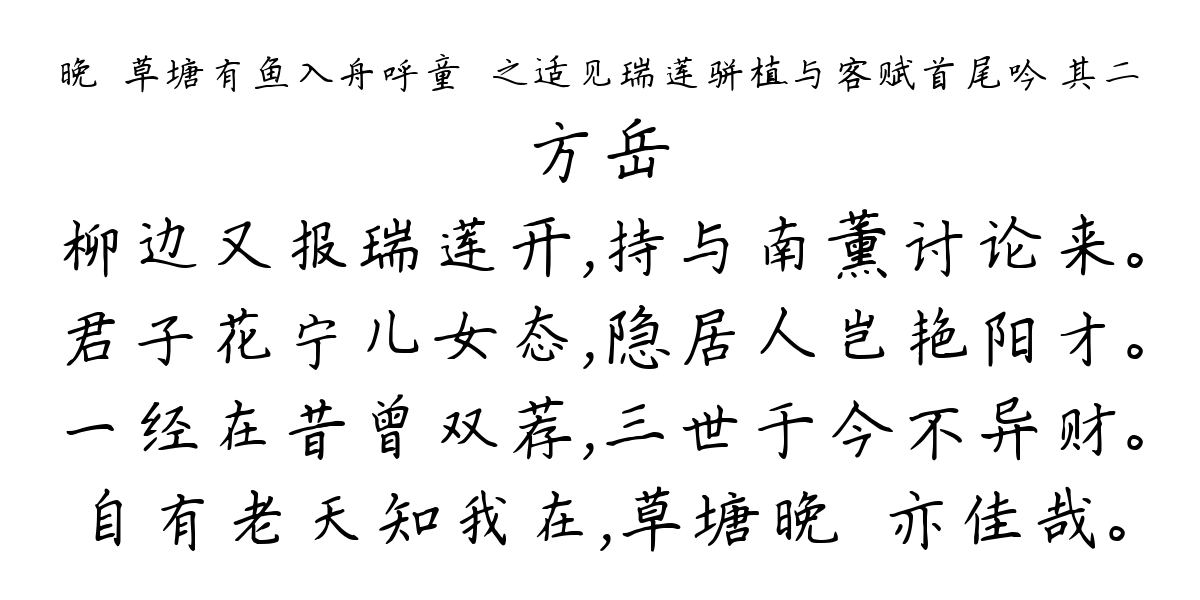 晚 草塘有鱼入舟呼童 之适见瑞莲骈植与客赋首尾吟 其二
方岳
柳边又报瑞莲开,持与南薰讨论来。
君子花宁儿女态,隐居人岂艳阳才。
一经在昔曾双荐,三世于今不异财。
自有老天知我在,草塘晚 亦佳哉。